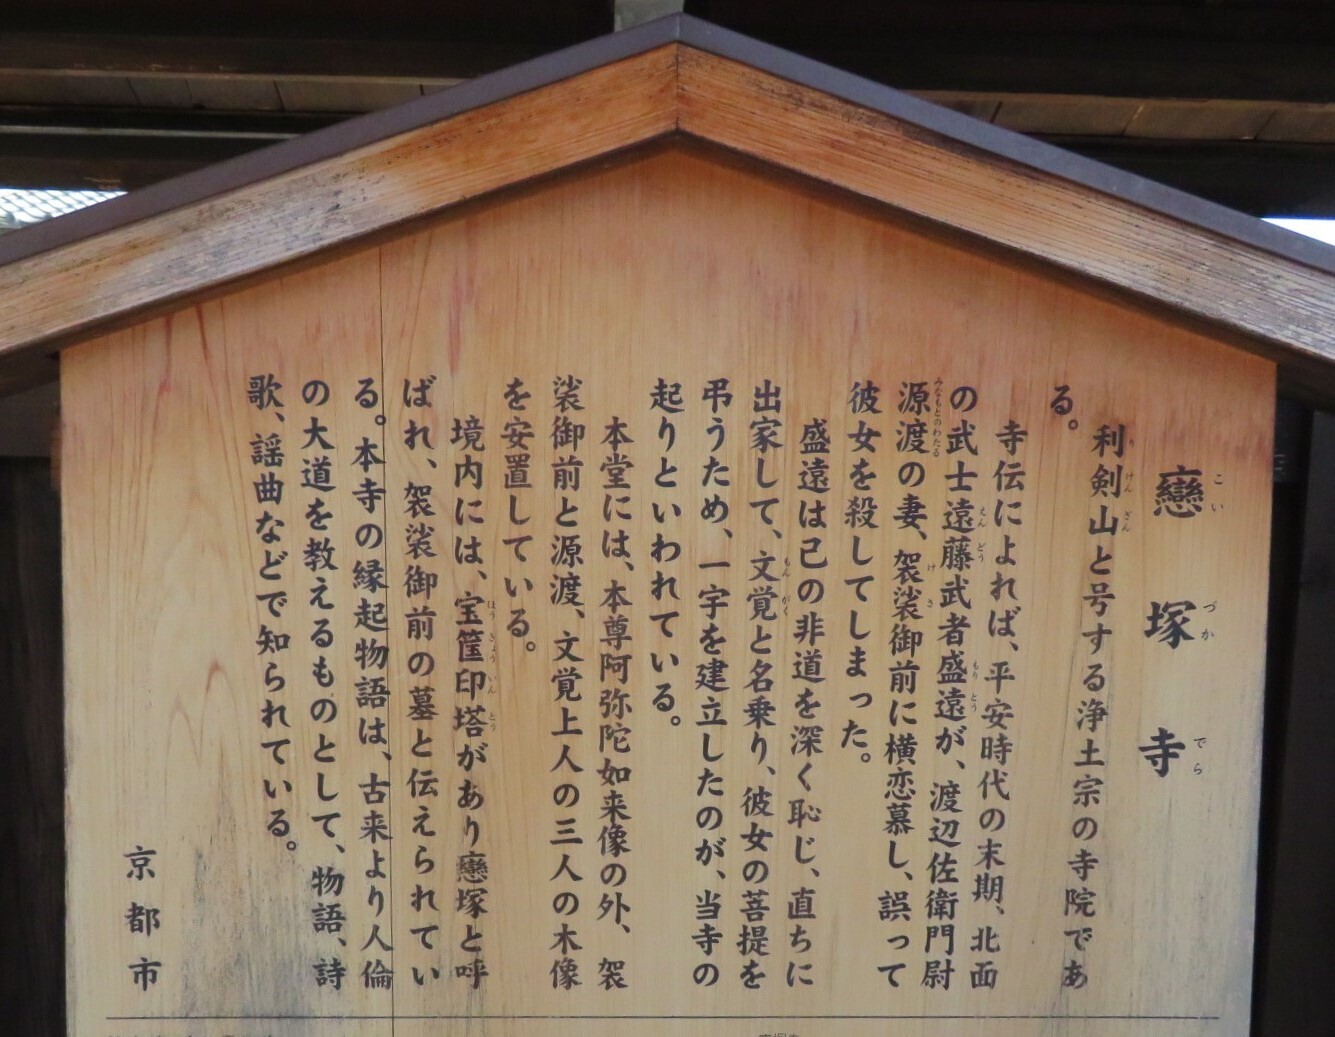 戀塚寺
こいづかでら
利剣山と号する浄土宗の寺院であ
りけんざん
る。
寺伝によれば、平安時代の末期、北面
の武士遠藤武者盛遠が、渡辺佐衛門尉
えんどうもりとう
源渡の妻、袈裟御前に横恋慕し、誤って
みなもとのわたるけさ
彼女を殺してしまった。
盛遠は己の非道を深く恥じ、直ちに
出家して、文覚と名乗り、彼女の菩提を
もんがく
弔うため、一宇を建立したのが、当寺の
起りといわれている。
本堂には、本尊阿弥陀如来像の外、袈
裟御前と源渡、文覚上人の三人の木像
を安置している。
境内には、宝筐印塔があり戀塚と呼
ほうきょういんとう
ばれ、袈裟御前の墓と伝えられてい
る。本寺の縁起物語は、古来より人倫
の大道を教えるものとして、物語、詩
歌、謡曲などで知られている。
京都市